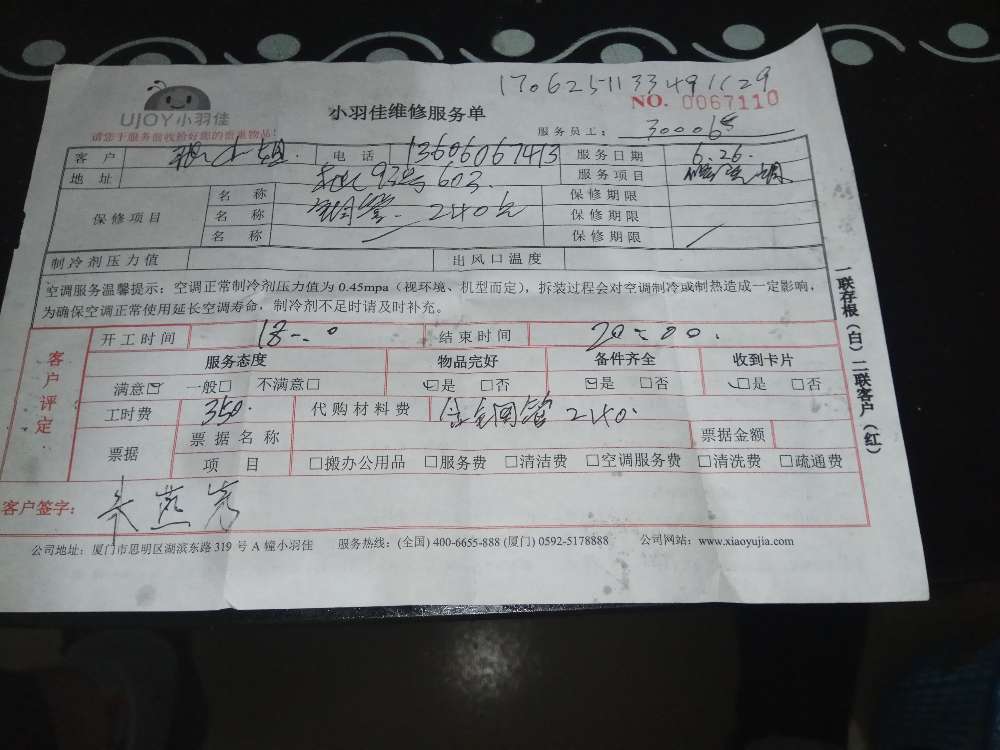 1706251133491129
UJOY小羽佳
小羽佳维修服务单
NO. 0067110
请您于服务前收拾好您的贵重物品!
服务员工: 300065
客户 小姐. 电话 13606067413 服务日期 6.26.
地址 93号603. 服务项目
保修项目 名称 铜管. 240元 保修期限
名称 保修期限
名称 保修期限
制冷剂压力值 出风口温度
空调服务温馨提示：空调正常制冷剂压力值为 0.45mpa（视环境、机型而定），拆装过程会对空调制冷或制热造成一定影响，
为确保空调正常使用延长空调寿命，制冷剂不足时请及时补充。
客户评定 开工时间 结束时间 20:00.
服务态度 物品完好 备件齐全 收到卡片
满意☑ 一般□ 不满意□ ☑是 □否 ☑是 □否 ☑是 □否
工时费 350. 代购材料费 铜管 240.
票据 票据名称 票据金额
项目 □搬办公用品 □服务费 □清洁费 □空调服务费 □清洗费 □疏通费
客户签字:
公司地址: 厦门市思明区湖滨东路 319 号 A 幢小羽佳 服务热线: (全国) 400-6655-888 (厦门) 0592-5178888 公司网站: www.xiaoyujia.com
一联存根（白）二联客户（红）